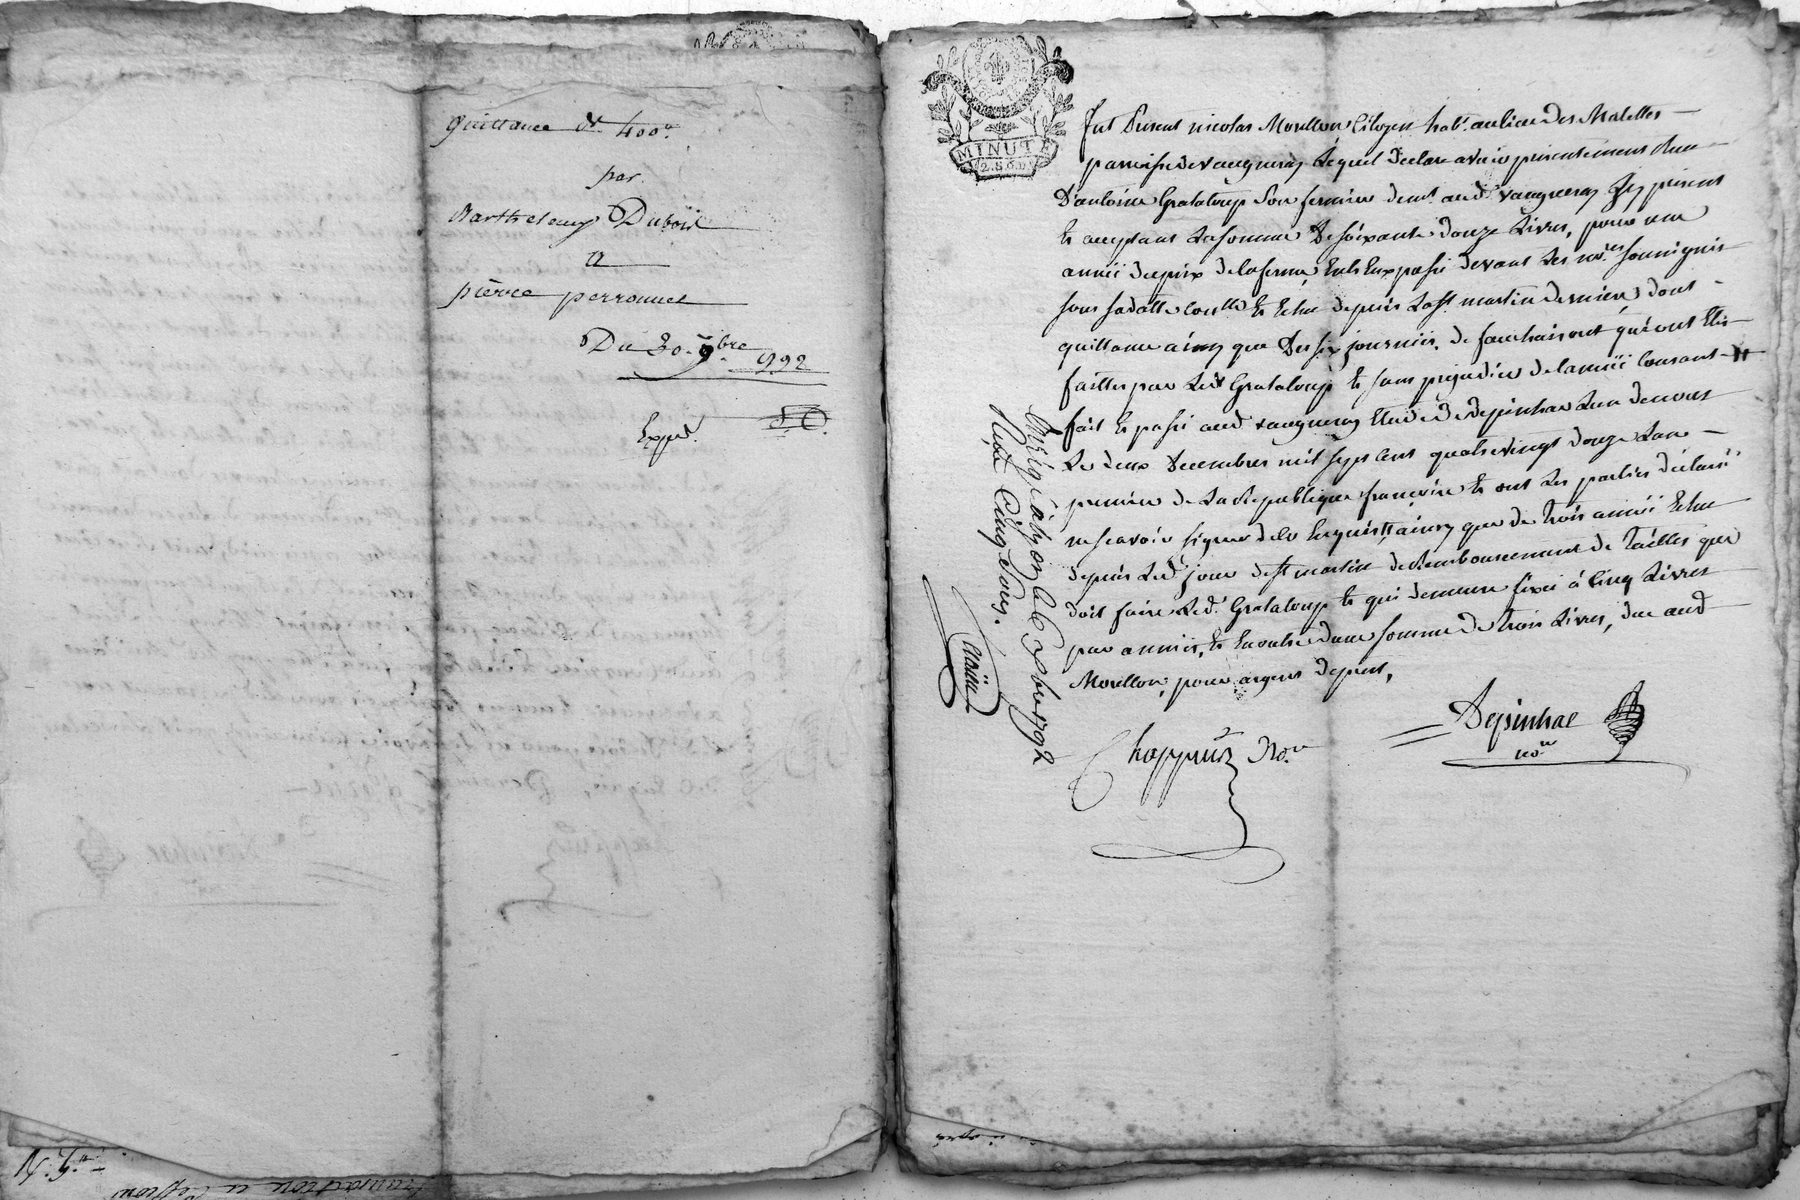 quittance de 400#
par
Barthelemy Dubois
a
pierre perronnet
Du 30. 9bre 1792
Exped.
MINUTE
2.S.6.D.
fut Present nicolas Morellon Citoyen habt. au lieu des Malettes
parroisse de vaugneray Lequel declare avoir presentement Recu
D'antoine Grataloup son fermier demt. aud. vaugneray Icy present
et acceptant La somme de soixante douze Livres, pour une
année du prix de la ferme, Entr'Eux passé devant Les nores. soussignés
sous sa datte conlle et Echue depuis La st martin derniere dont
quittance ainsy que des six journées de fauchaison qu'ont Eté
faittes par Led. Grataloup et sans prejudice de l'année Courante
fait et passé aud. vaugneray Etude de depinhac L'un de nous
Le deux decembre mil sept cent quatrevingt douze L'an
premier de La Republique françoise et ont Les parties déclaré
ne scavoir signer de ce Enquis, ainsy que de trois année Echue
depuis Led. jour de st martin de Remboursement de tailles que
doit faire Led. Grataloup et qui demeure fixée à cinq Livres
par année, et En outre d'une somme de trois Livres, due aud.
Morellon, pour argent depreté.
Chappuis Nore.
Depinhac
nore
Enrégé à lyon le 7 Xbre 1792
Reçu Cinq Sous.